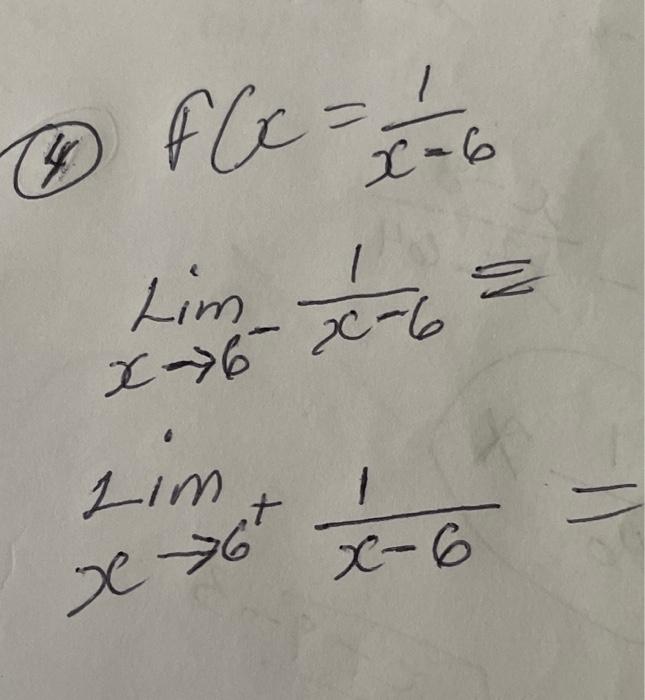 ④ f(x = 1/(x-6)
Lim x→6⁻ 1/(x-6) =
Lim x→6⁺ 1/(x-6) =